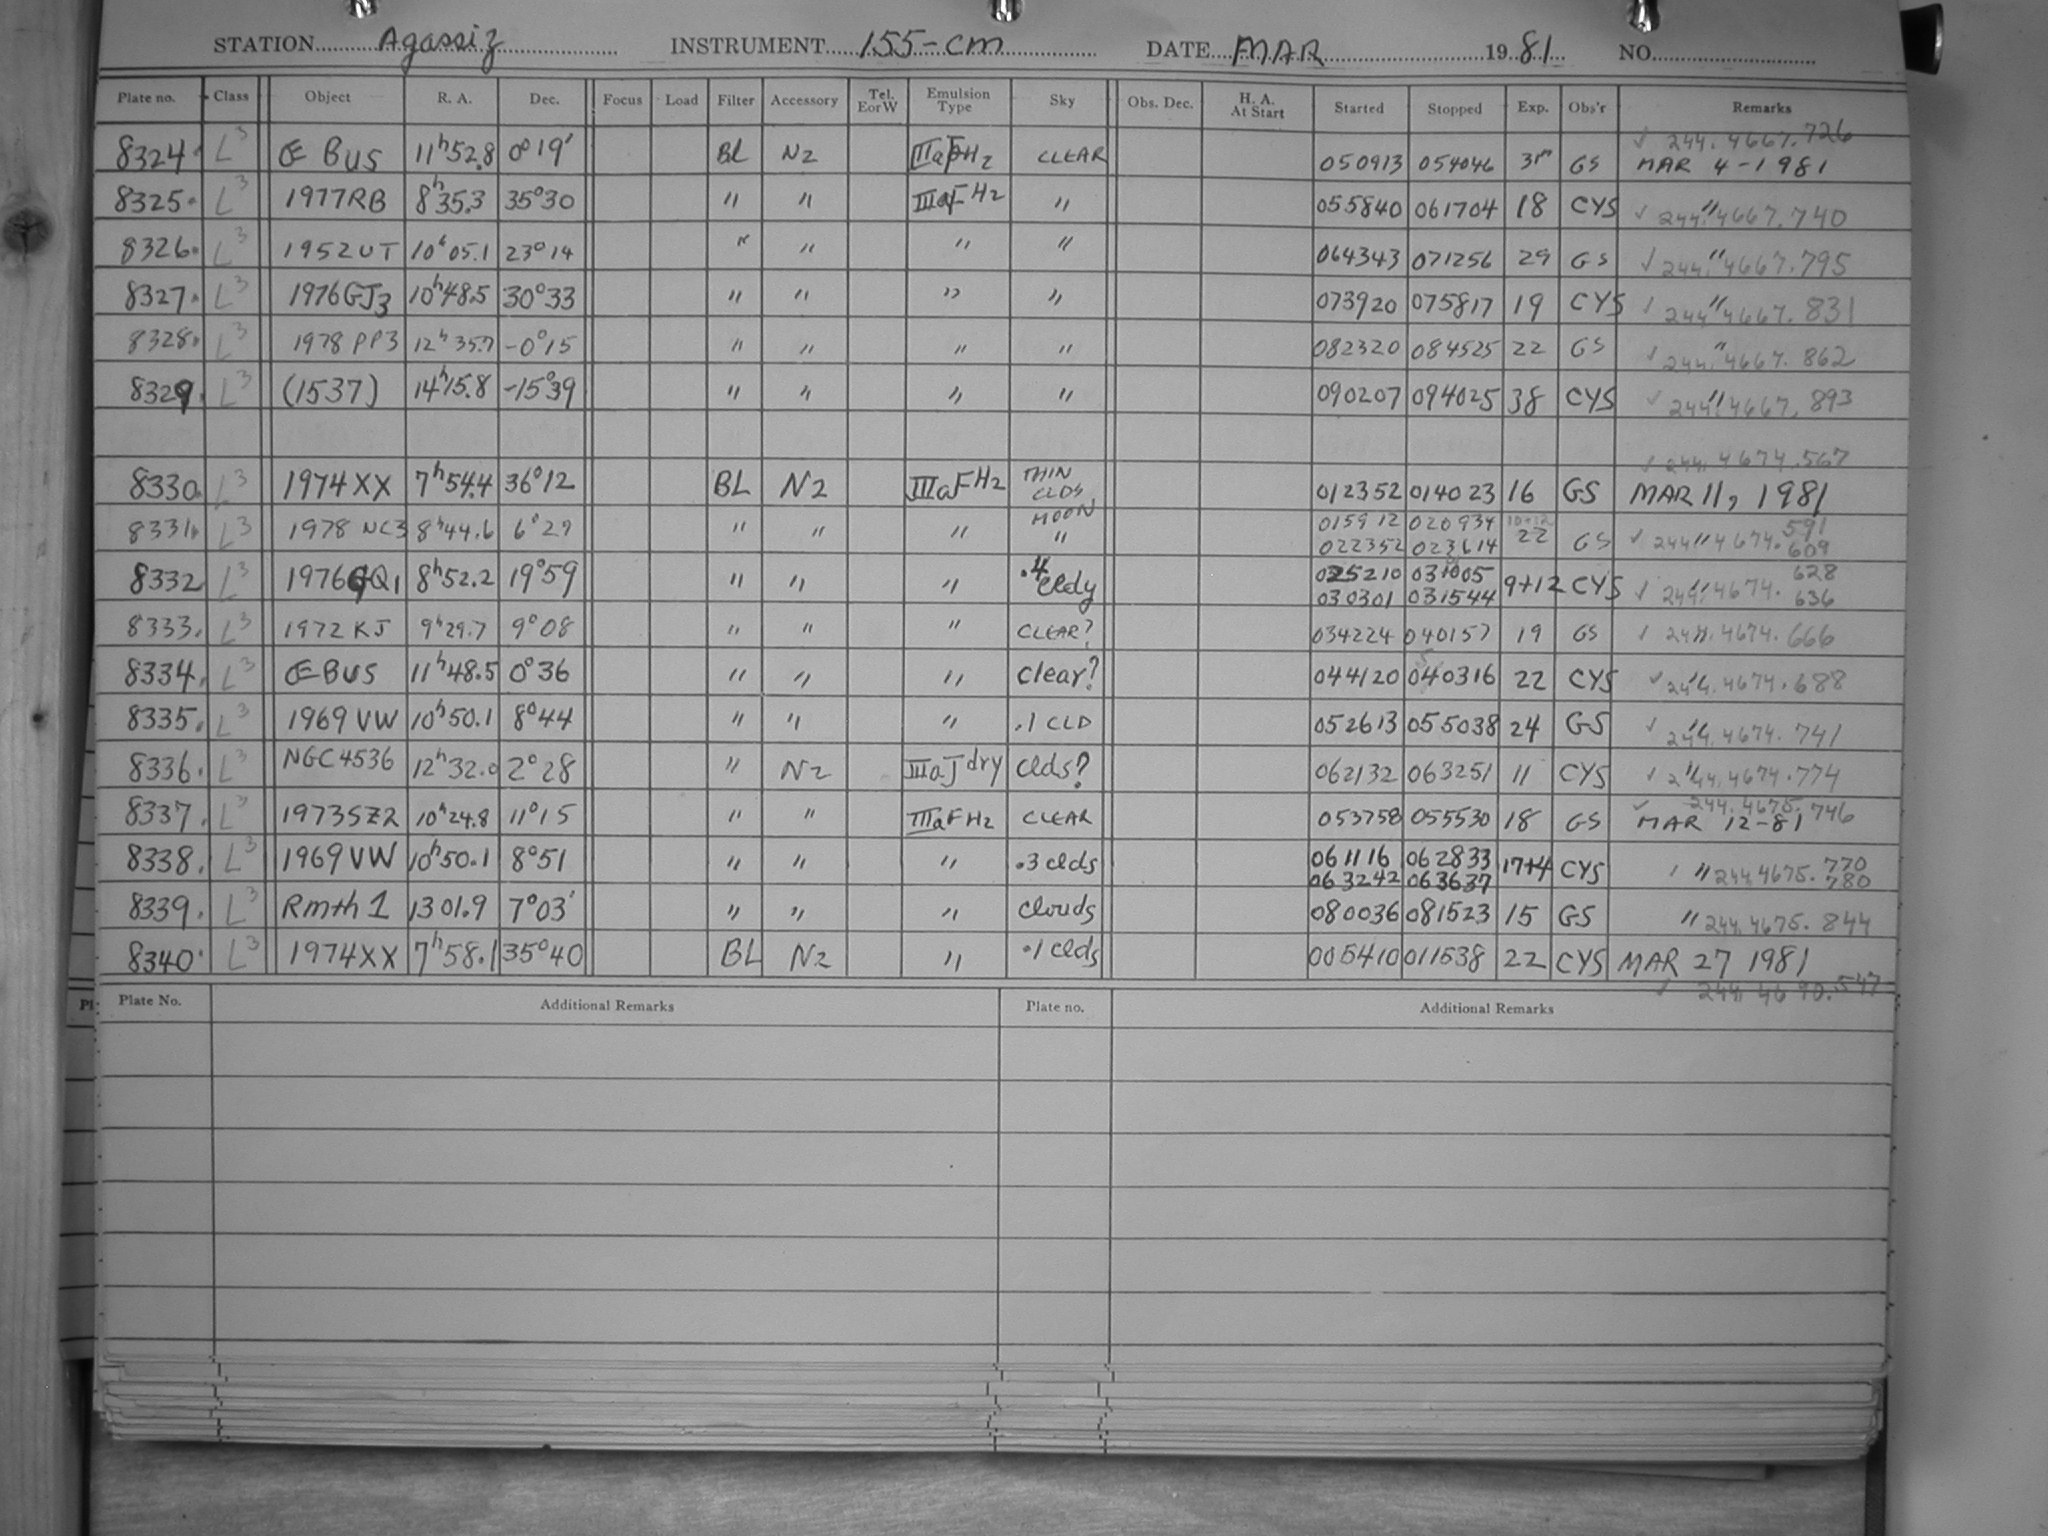 STATION Agassiz INSTRUMENT 155-cm DATE MAR 1981 NO.
Plate no. Class Object R. A. Dec. Focus Load Filter Accessory Tel. E or W Emulsion Type Sky Obs. Dec. H. A. At Start Started Stopped Exp. Obs'r Remarks
244.4667.726
8324 L3 Œ BUS 11h52.8 0°19' BL N2 IIIaF H2 CLEAR 050913 054046 31m GS MAR 4-1981
8325 L3 1977RB 8h35.3 35°30 " " IIIaF H2 " 055840 061704 18 CYS " 244.4667.740
8326 L3 1952UT 10h05.1 23°14 " " " " 064343 071256 29 GS " 244.4667.795
8327 L3 1976GJ3 10h48.5 30°33 " " " " 073920 075817 19 CYS " 244.4667.831
8328 L3 1978 PP3 12h35.7 -0°15 " " " " 082320 084525 22 GS " 244.4667.862
8329 L3 (1537) 14h15.8 -15°39 " " " " 090207 094025 38 CYS " 244.4667.893
244.4674.567
8330 L3 1974XX 7h54.4 36°12 BL N2 IIIaF H2 THIN CLDS MOON 012352 014023 16 GS MAR 11, 1981
8331 L3 1978 NC3 8h44.6 6°29 " " " " 015912 020934 10+12 591
022352 023614 22 GS " 244.4674.609
8332 L3 1976GQ1 8h52.2 19°59 " " " .4 Cldy 025210 031005 9+12 CYS " 244.4674.628
030301 031544 636
8333 L3 1972 KJ 9h29.7 9°08 " " " CLEAR? 034224 040157 19 GS " 244.4674.666
8334 L3 ŒBUS 11h48.5 0°36 " " " clear? 044120 040316 22 CYS " 244.4674.688
8335 L3 1969VW 10h50.1 8°44 " " " .1 CLD 052613 055038 24 GS " 244.4674.741
8336 L3 NGC4536 12h32.0 2°28 " N2 IIIaJ dry Clds? 062132 063251 11 CYS " 244.4674.774
244.4675.746
8337 L3 1973SZ2 10h24.8 11°15 " " IIIaF H2 CLEAR 053758 055530 18 GS MAR 12-81
8338 L3 1969VW 10h50.1 8°51 " " " .3 clds 061116 062833 17+4 CYS " 244.4675.770
063242 063637 780
8339 L3 Rmth 1 1301.9 7°03' " " " clouds 080036 081523 15 GS " 244.4675.844
8340 L3 1974XX 7h58.1 35°40 BL N2 " .1 clds 005410 011538 22 CYS MAR 27 1981
244.4690.547
Plate No. Additional Remarks Plate no. Additional Remarks